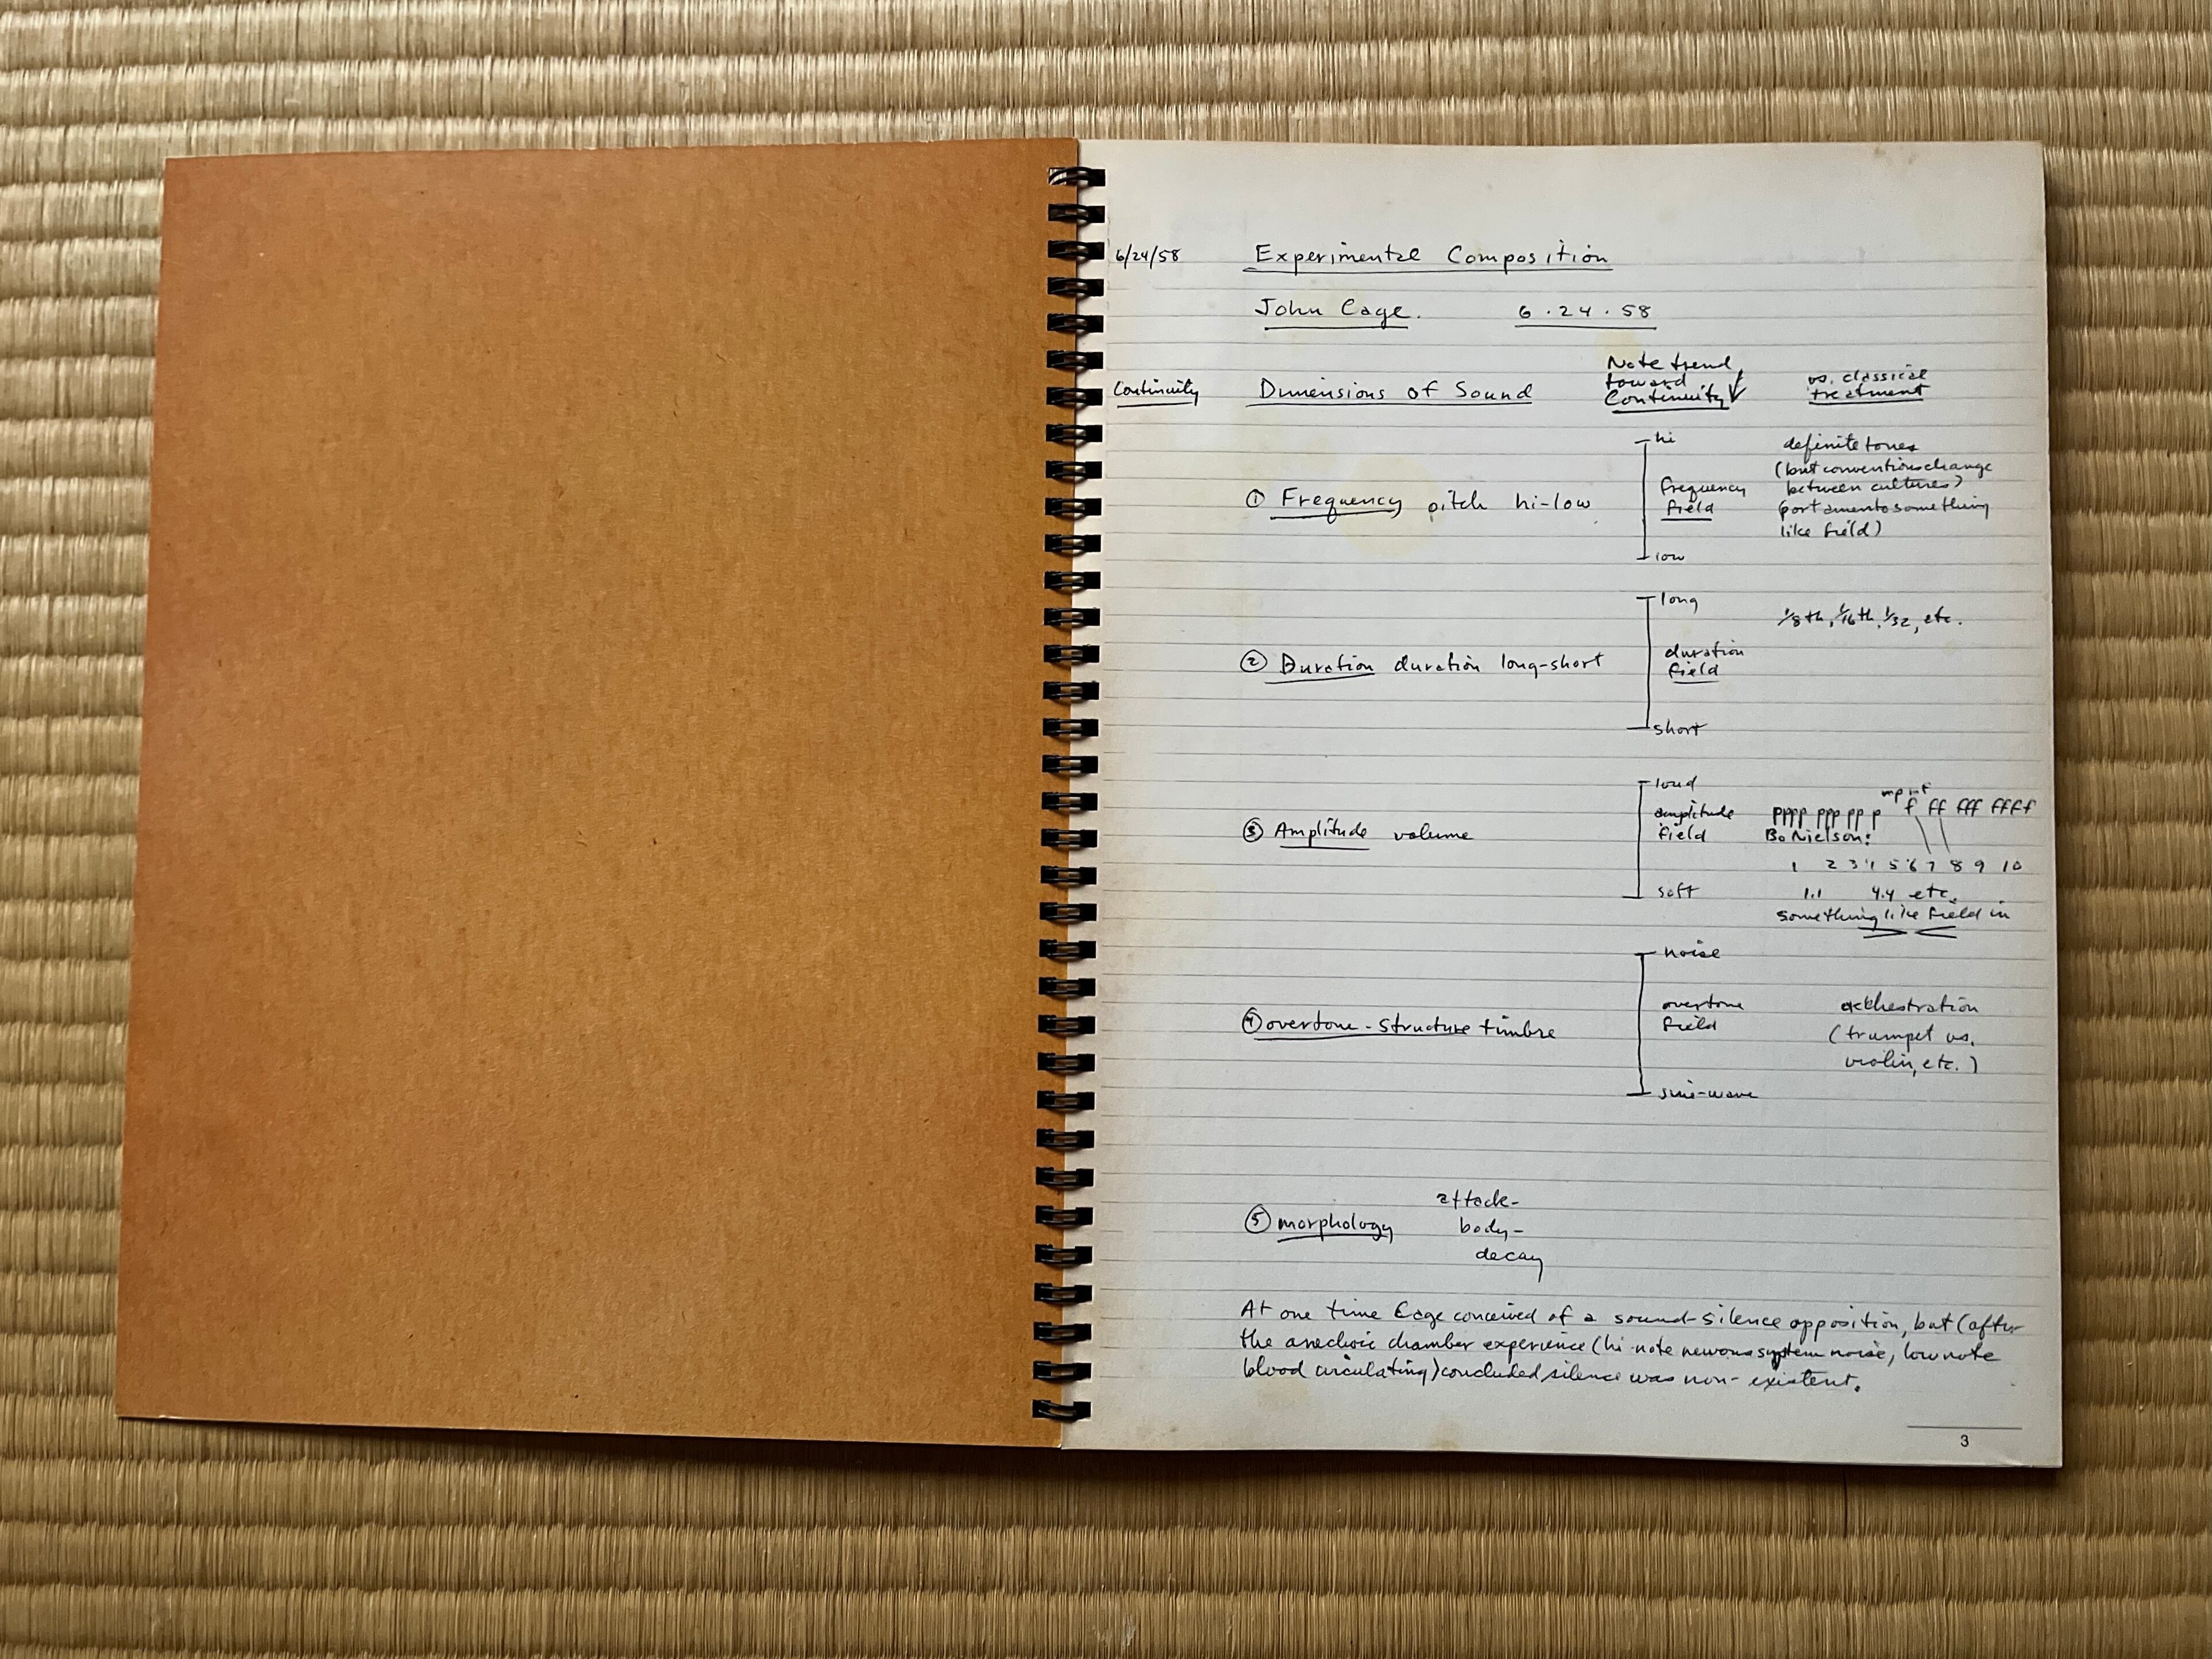 6/24/58
Experimental Composition
John Cage. 6 · 24 · 58
Continuity
Dimensions of Sound
Note trend
toward
Continuity
vs. classical
treatment
① Frequency pitch hi-low
hi
frequency
field
low
definite tones
(but conventions change
between cultures)
(portamento something
like field)
② Duration duration long-short
long
duration
field
short
1/8th, 1/16th, 1/32, etc.
③ Amplitude volume
loud
amplitude
field
soft
mp mf
pppp ppp pp p f ff fff ffff
Bo Nielson:
1 2 3 4 5 6 7 8 9 10
1.1 4.4 etc.
something like field in
④ overtone-structure timbre
noise
overtone
field
sine-wave
orchestration
(trumpet vs.
violin, etc.)
⑤ morphology
attack-
body-
decay
At one time Cage conceived of a sound-silence opposition, but (after
the anechoic chamber experience (hi note nervous system noise, low note
blood circulating) concluded silence was non-existent.
3